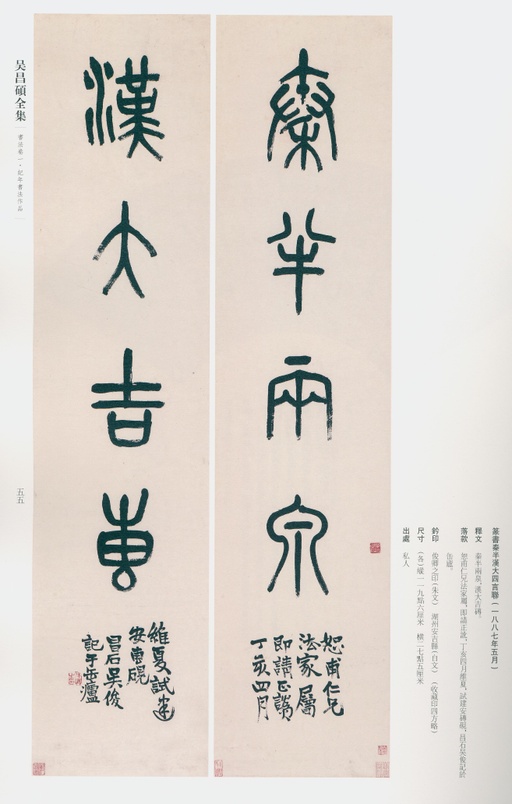 篆書秦半漢大四言聯（一八八七年五月）
釋文 秦半兩泉，漢大吉磚。
落款 恕甫仁兄法家屬，即請正訛。丁亥四月維夏，試建安磚硯，昌石吳俊記於
缶廬。
鈐印 俊卿之印（朱文） 湖州安吉縣（白文） （收藏印四方略）
尺寸 （各）縱一一九點六厘米 橫二七點五厘米
出處 私人
秦半兩泉
恕甫仁兄
法家屬
即請正譌
丁亥四月
漢大吉專
維夏試建
安專硯
昌石吳俊
記于缶廬
吴昌碩全集
書法卷一·紀年書法作品
五五